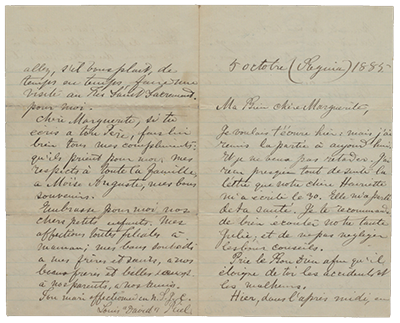 allez, s'il vous plait, de
temps en temps, faire une
visite au Très Saint Sacrement
pour moi.
Chère Marguerite, si tu
vois à ton Père, fais lui
bien tous mes compliments.
qu'ils prient pour moi. mes
respects à toute la famille,
à Moïse Auguste, mes bons
souvenirs.
Embrasse pour moi nos
chers petits enfants. Mes
affections toute filiales à
maman; mes bons souhaits
à mes frères et sœurs, à nos
beaux frères et belles sœurs
à nos parents, à nos amis.
Ton mari affectionné en N.S.J.C.
Louis "David" Riel.
5 octobre (Regina) 1885
Ma Bien chère Marguerite,
Je voulais t'écrire hier: mais j'ai
remis la partie à aujourd'hui
Et je ne veux pas retarder. J'ai
reçu presque tout de suite la
lettre que notre chère Henriette
m'a écrite le 30. Elle m'a parlé
de ta santé. Je te recommande
de bien écouter notre toute
Julie, et de ne pas négliger
les bons conseils.
Prie le Bon Dieu afin qu'il
éloigne de toi les accidents et
les malheurs.
Hier, dans l'après midi, un